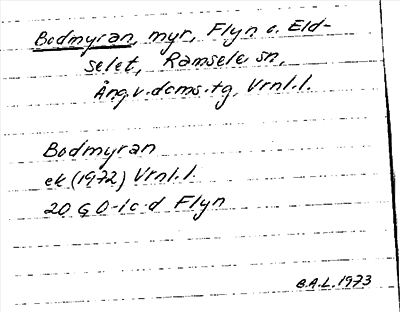 Bodmyran, myr, Flyn o. Eld-
selet, Ramsele sn,
Ång.v.dcms.tg, Vrnl.l.
Bodmyran
ek (1972) Vrnl.l.
20 G 0-1 c-d Flyn
B.A.L. 1973